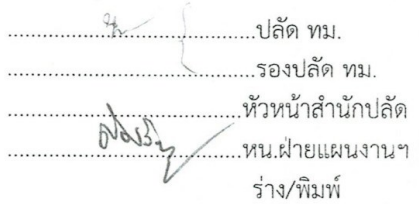 ........................................ปลัด ทม.
........................................รองปลัด ทม.
........................................หัวหน้าสำนักปลัด
........................................หน.ฝ่ายแผนงานฯ
ร่าง/พิมพ์